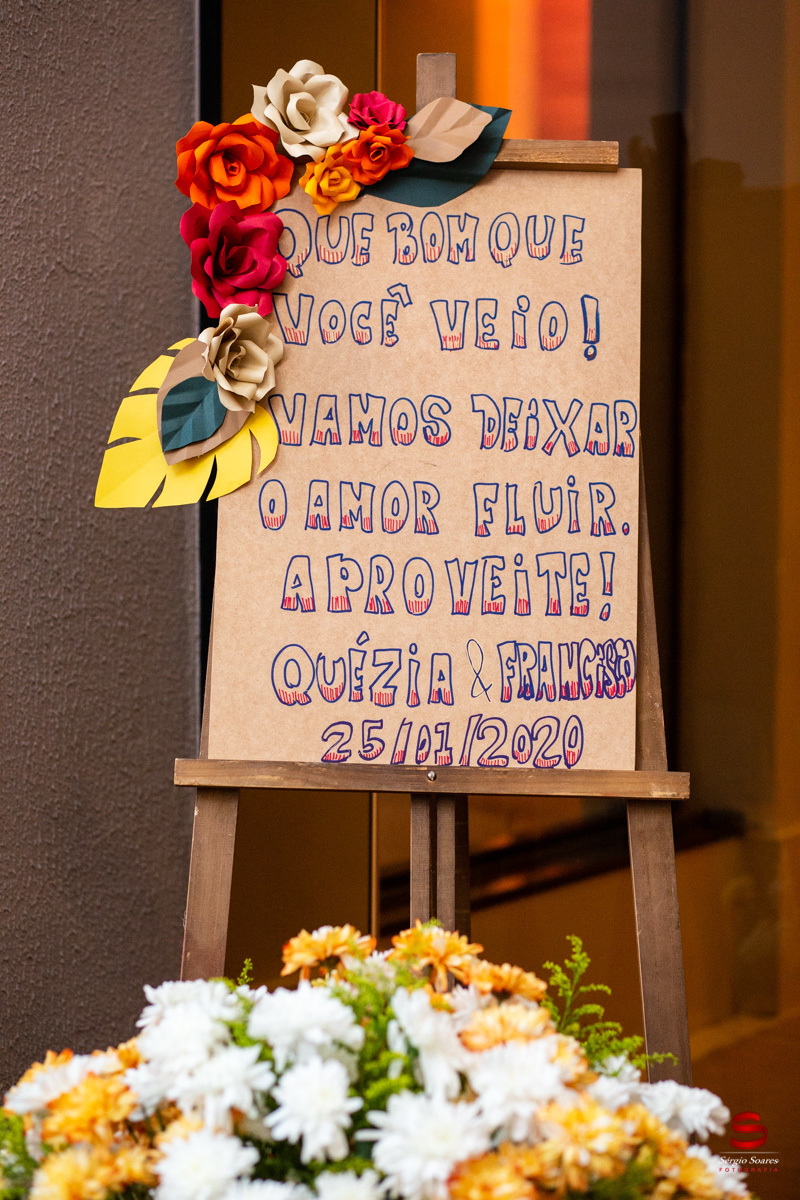 QUE BOM QUE
VOCÊ VEIO!
VAMOS DEIXAR
O AMOR FLUIR.
APROVEITE!
QUÉZIA & FRANCISCO
25/01/2020
S
Sérgio Soares
FOTOGRAFIA